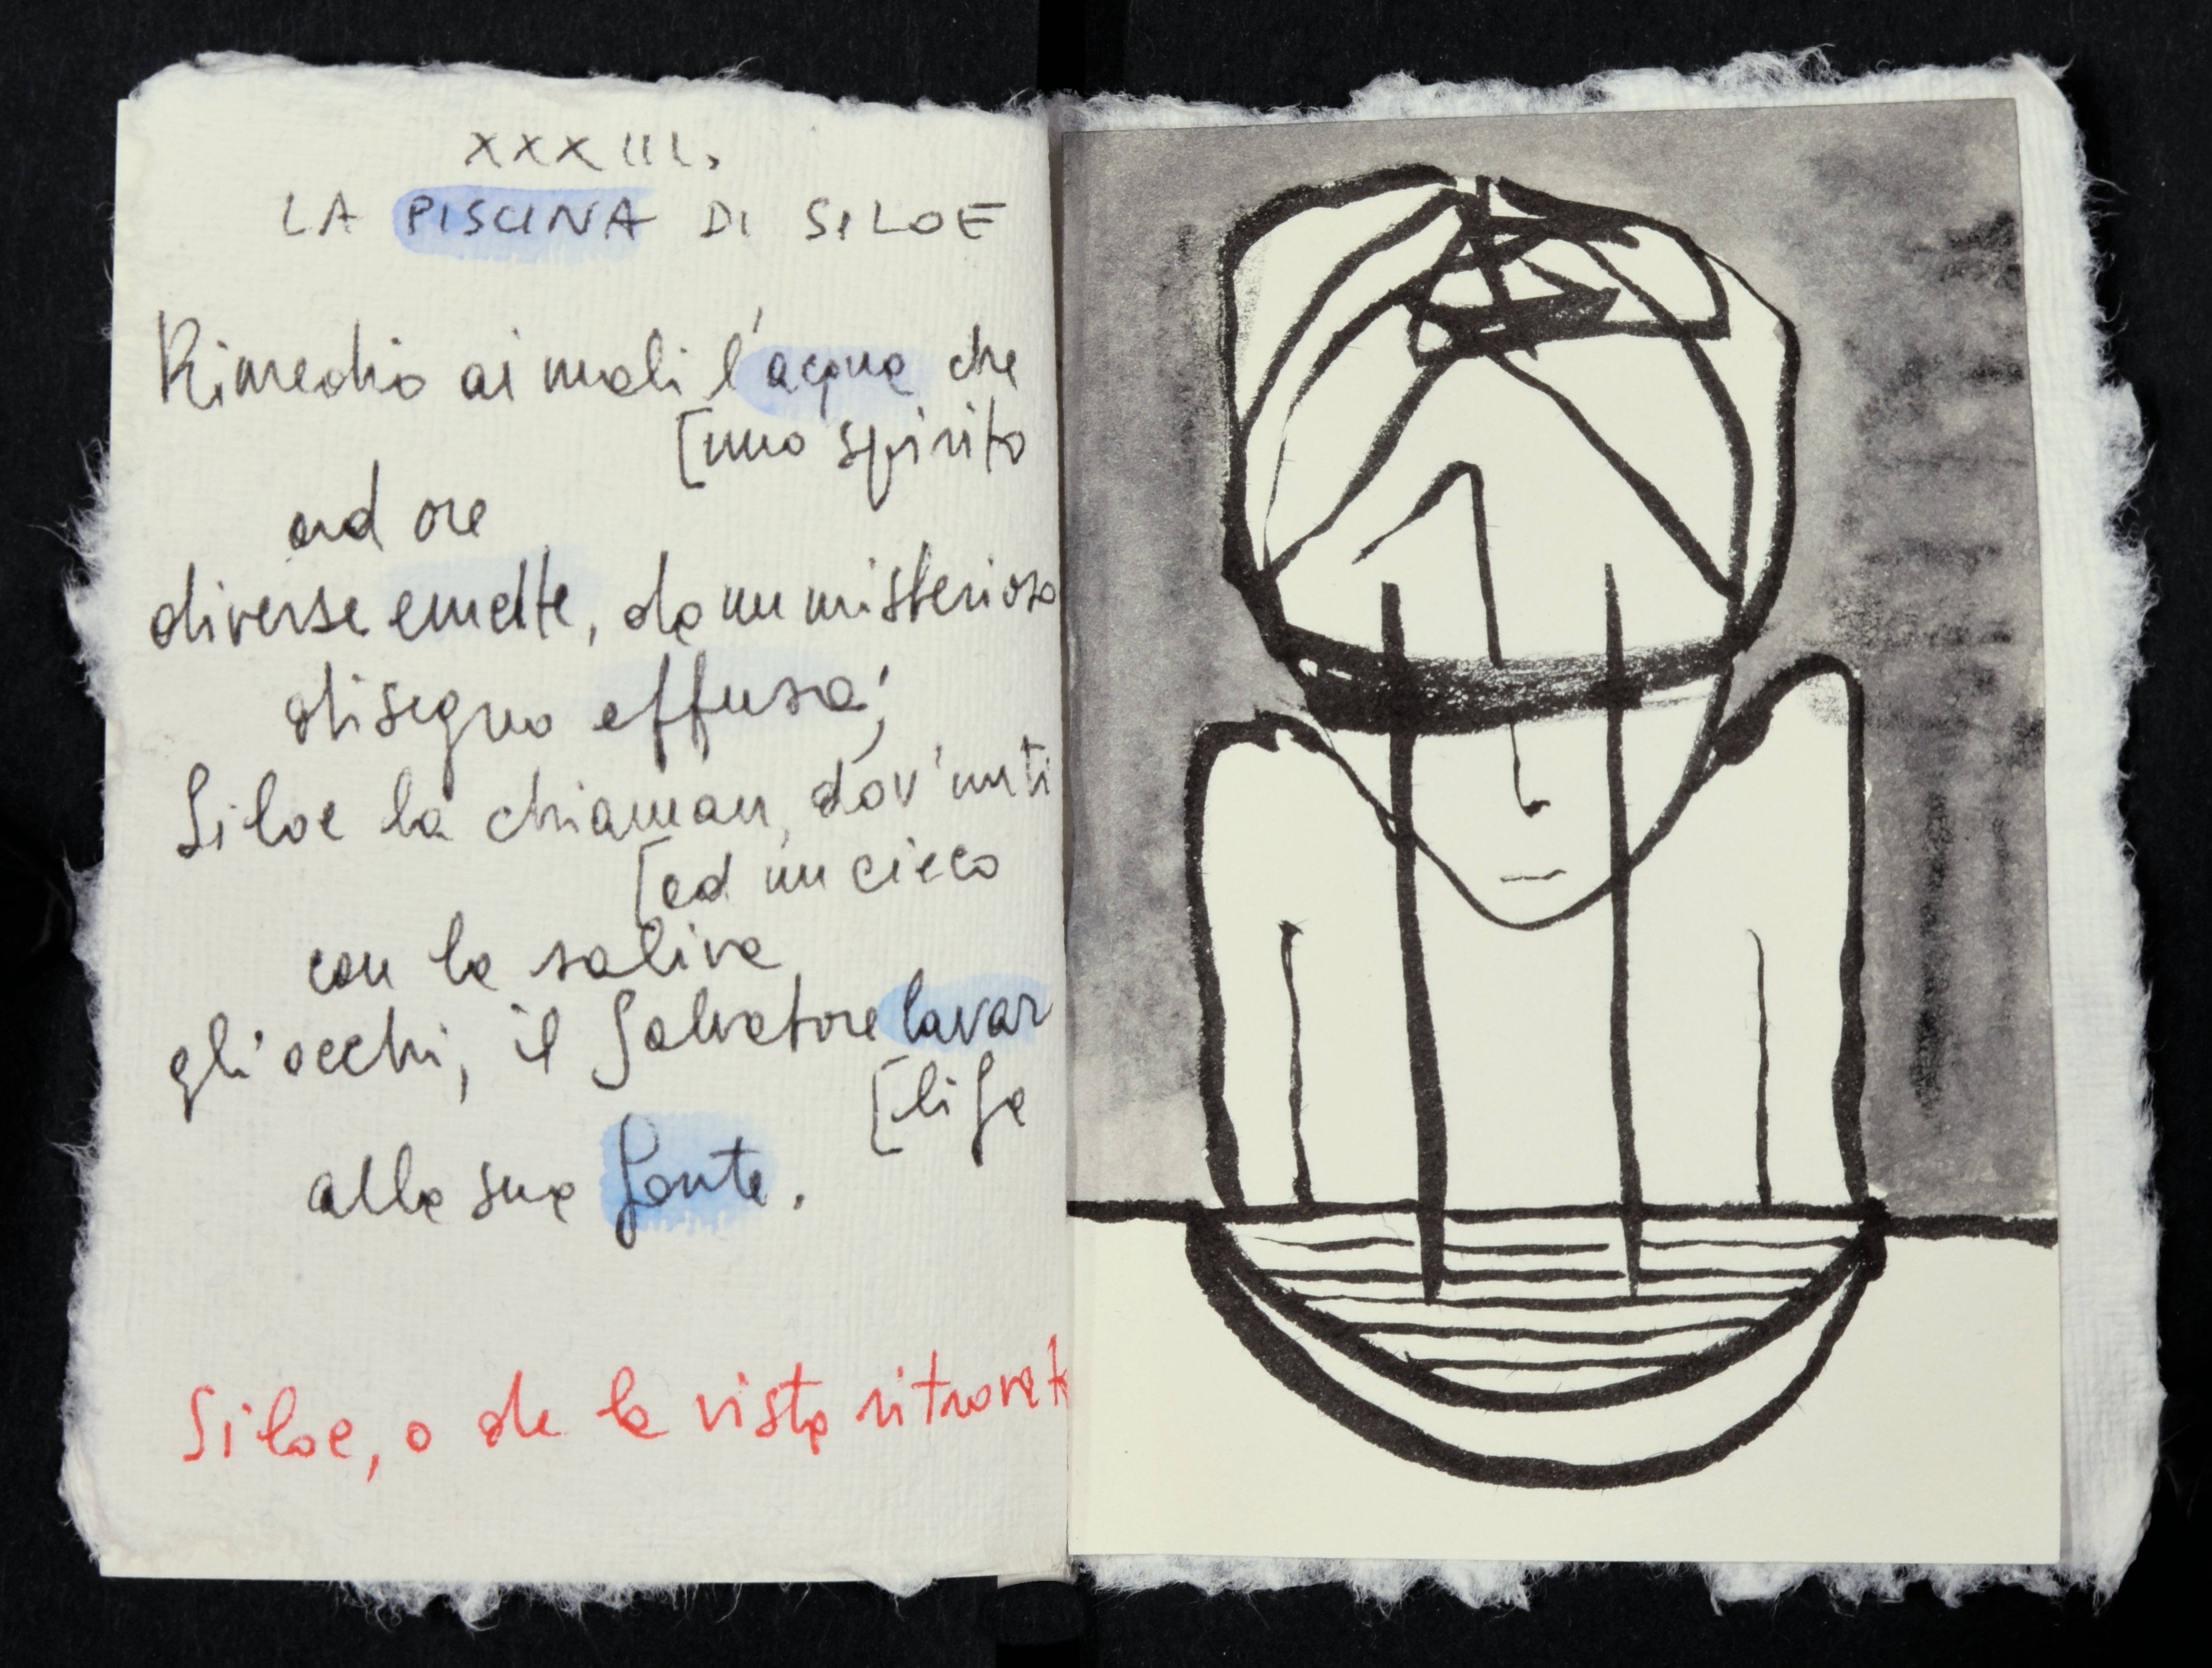 XXXIII.
LA PISCINA DI SILOE
Rimedio ai mali l'acqua che
[uno spirito
ad ore
diverse emette, da un misterioso
disegno effusa;
Siloe la chiaman, dov'unti
[ad un cieco
con la saliva
gli occhi, il Salvatore lavar
[li fa
alla sua fonte.
Siloe, o de la vista